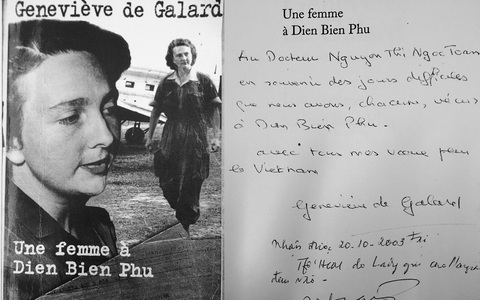 Geneviève de Galard
Une femme à
Dien Bien Phu
Une femme
à Dien Bien Phu
Au Docteur Nguyen Thi Ngoc Toan
en souvenir des jours difficiles
que nous avons, chacune, vécus
à Dien Bien Phu.
avec tous mes vœux pour
le Vietnam
Geneviève de Galard
20-10-2003 Tại